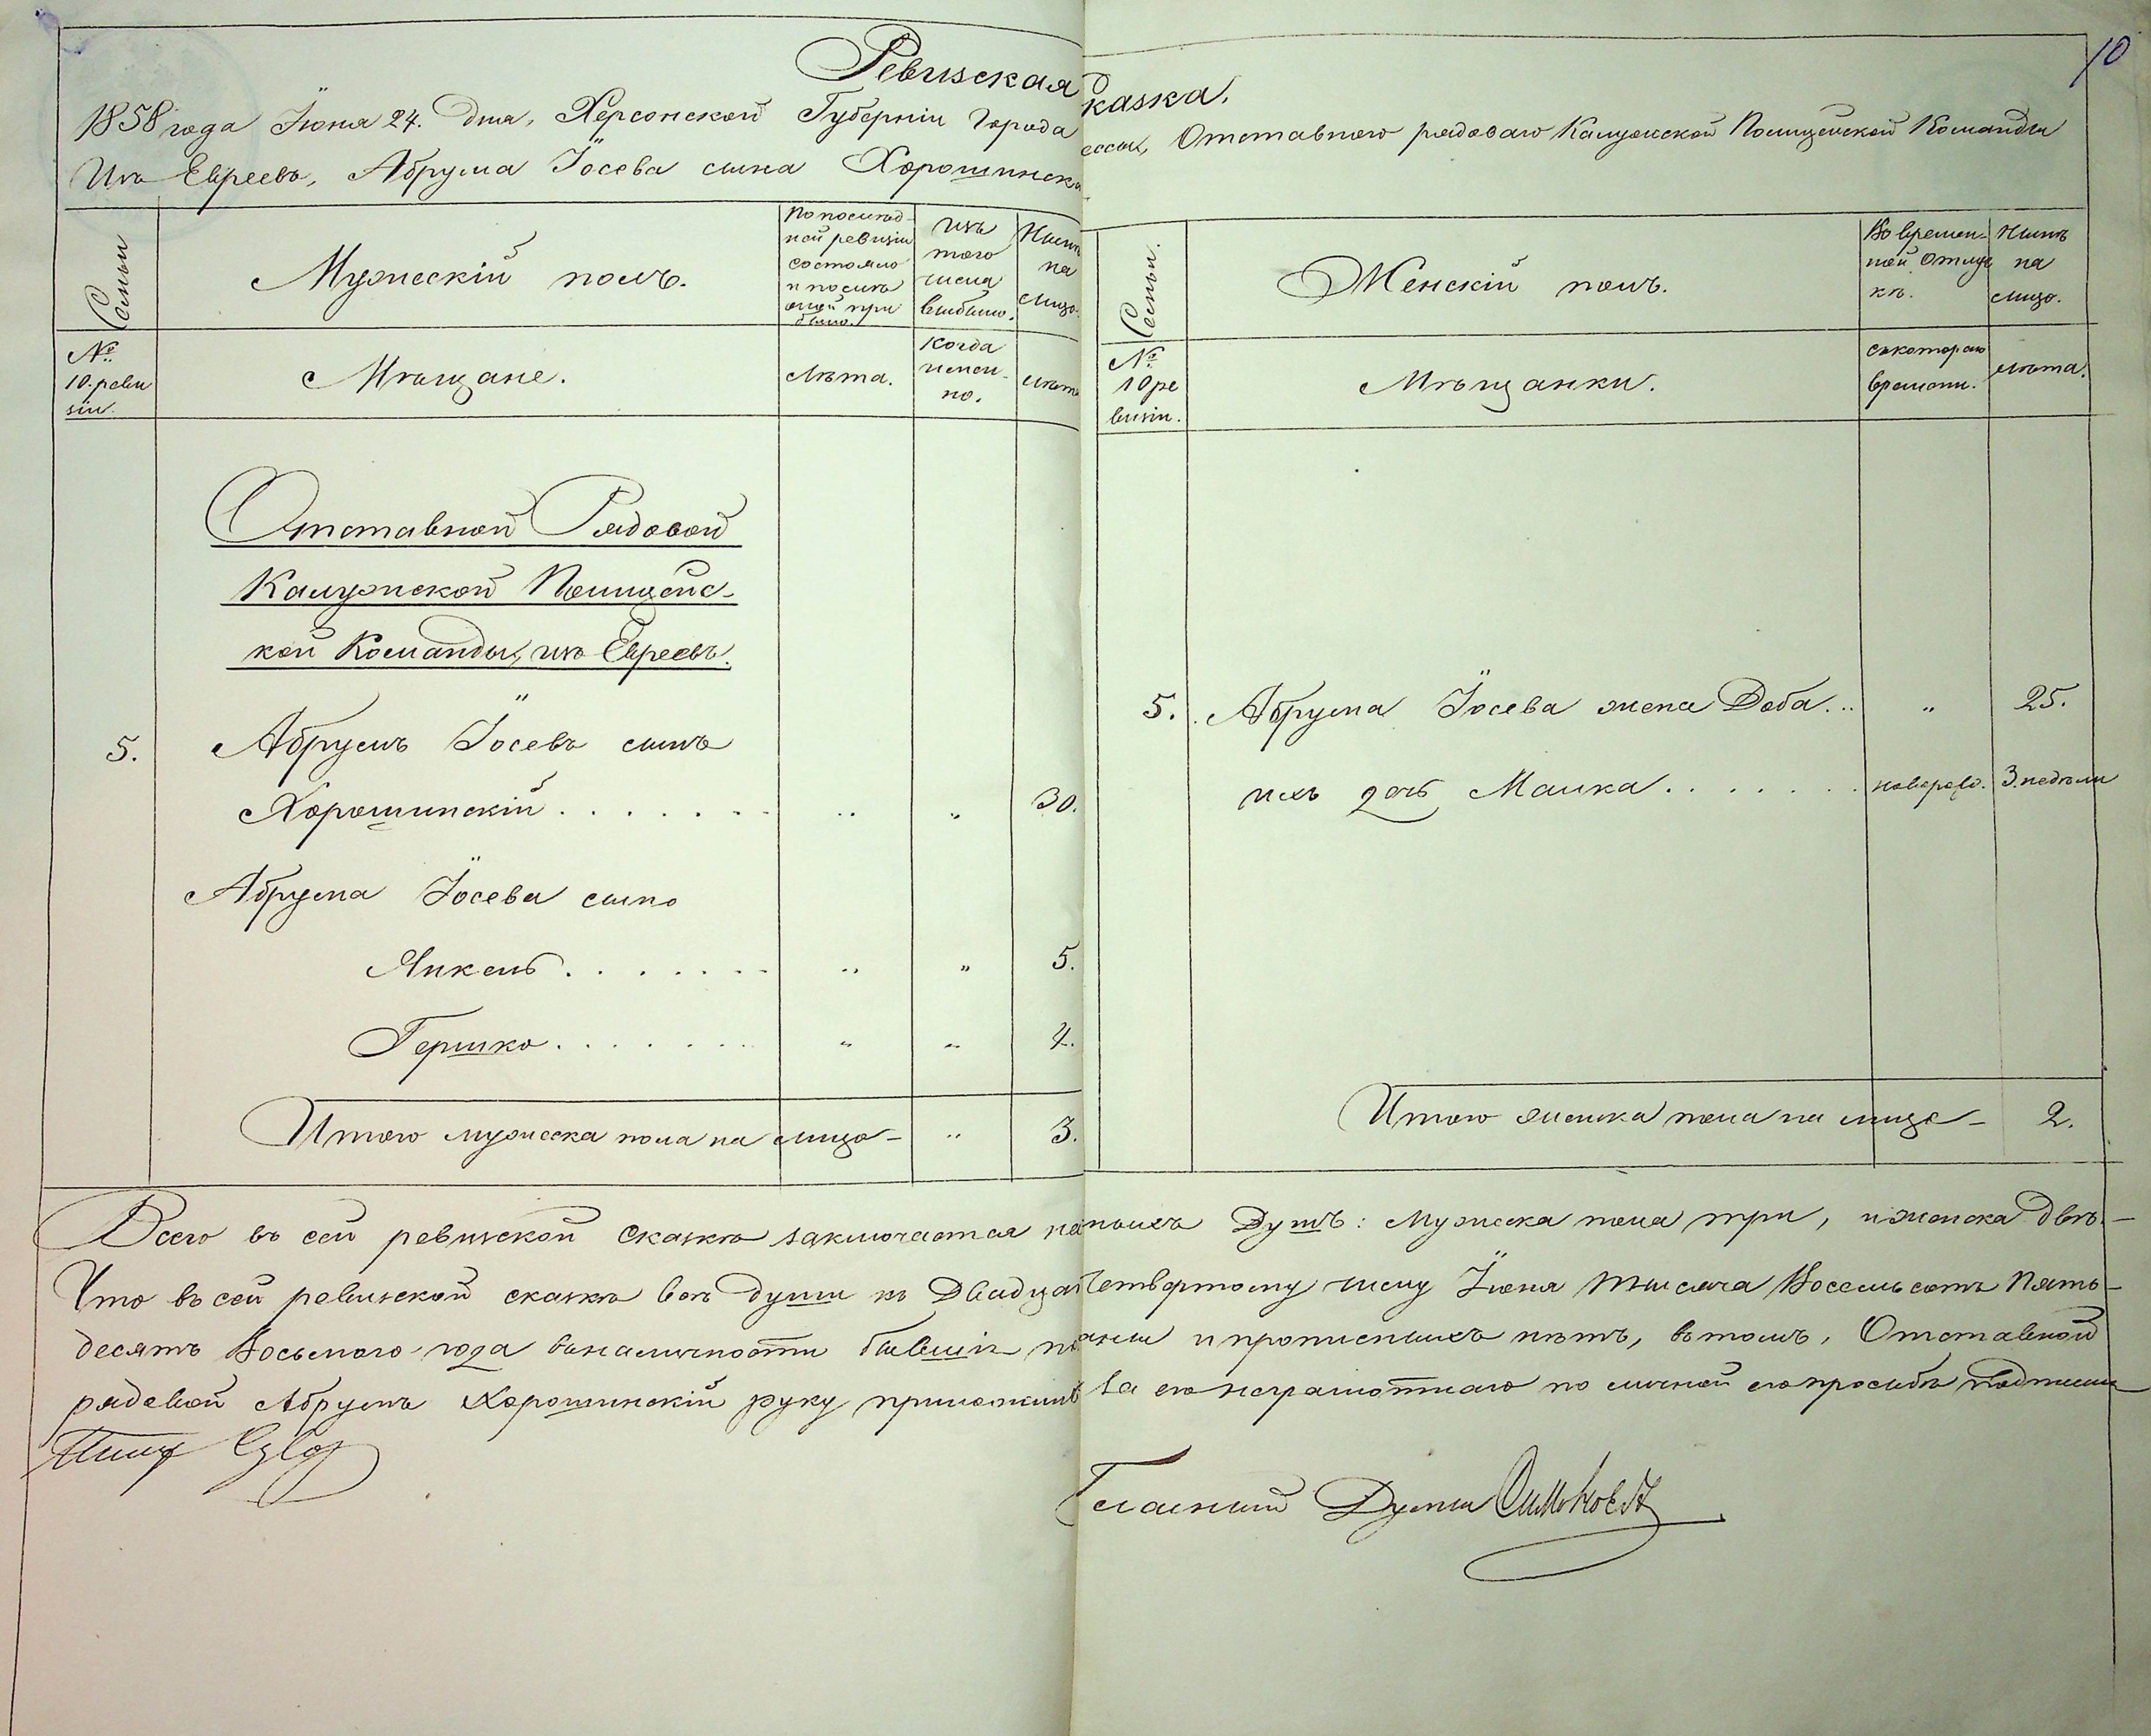 10
Ревизская сказка.
1858 года Іюня 24. дня, Херсонской Губерніи Города Одессы, Отставного рядоваго Калужской Полицейской Команды
Изъ Евреевъ, Абрума Іосева сына Хорошинска
Семьи
Мужескій полъ.
По послѣд-
ней ревизіи
состояло
и послѣ
оной при
было.
Изъ
того
числа
выбыло.
Нынѣ
на
лицо.
Семьи.
Женскій полъ.
Во времен-
ной отлуч
кѣ.
Нынѣ
на
лицо.
№
10. реви
зіи.
Мѣщане.
Лѣта.
Когда
имен-
но.
Лѣта
№
10 ре
визіи.
Мѣщанки.
съ котораго
времени.
Лѣта.
Отставной Рядовой
Калужской Полицейс-
кой Команды, изъ Евреевъ.
5. Абрумъ Іосевъ сынъ
Хорошинскій . . . . . . . „ „ 30.
Абрума Іосева сыно
Янкель . . . . . . . „ „ 5.
Гершко . . . . . . . „ „ 4.
Итого мужеска пола на лицо - „ 3.
5. Абрума Іосева жена Доба . . „ 25.
ихъ дочь Малка . . . . . . . новорож. 3 недѣли
Итого женска пола на лицо - 2.
Всего въ сей ревизской сказкѣ заключается наличныхъ Душъ: Мужеска пола три, и женска двѣ. -
Что въ сей ревизской сказкѣ всѣ души къ Двадцать Четвертому числу Іюня Тысяча Восемьсотъ Пять-
десятъ Восьмого года въ наличности бывшія показаны и прописныхъ нѣтъ, въ томъ, Отставной
рядовой Абрумъ Хорошинскій руку приложилъ за его неграмотнаго по личной его просьбѣ
Гласный Думы Симоновъ